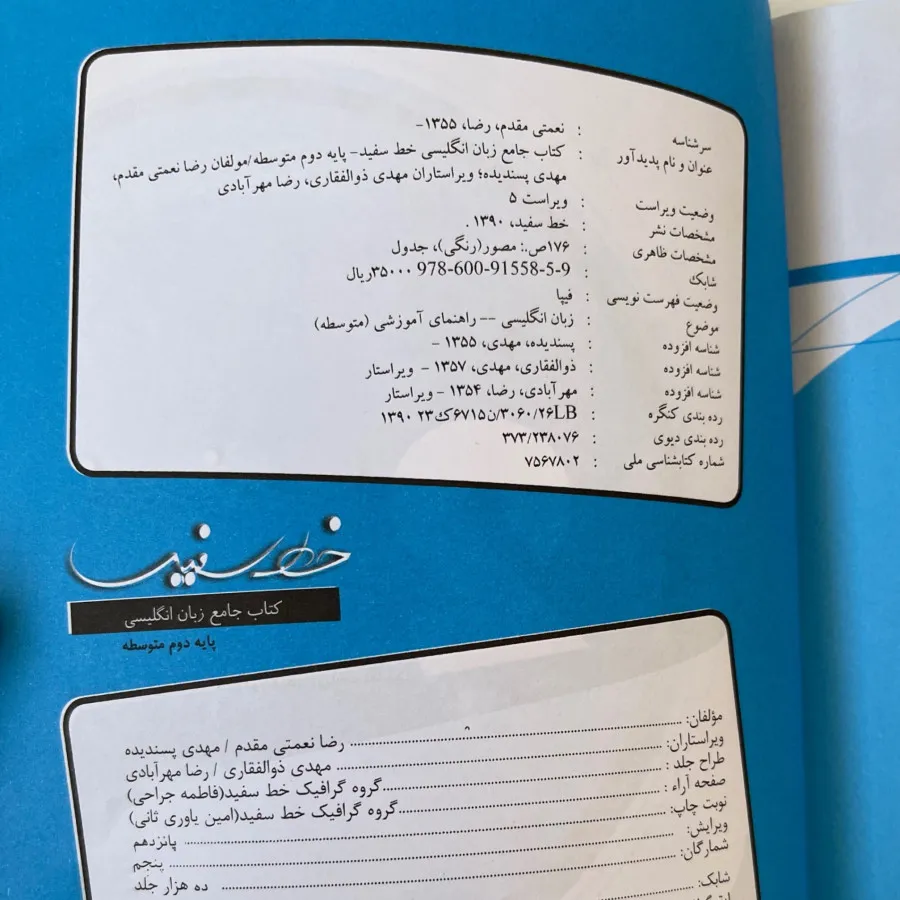 سرشناسه : نعمتی مقدم، رضا، ۱۳۵۵-
عنوان و نام پدیدآور : کتاب جامع زبان انگلیسی خط سفید- پایه دوم متوسطه/مولفان رضا نعمتی مقدم،
مهدی پسندیده؛ ویراستاران مهدی ذوالفقاری، رضا مهرآبادی
وضعیت ویراست : ویراست ۵
مشخصات نشر : خط سفید، ۱۳۹۰ .
مشخصات ظاهری : ۱۷۶ص.: مصور(رنگی)، جدول
شابک : 978-600-91558-5-9 ۳۵۰۰۰ریال
وضعیت فهرست نویسی : فیپا
موضوع : زبان انگلیسی -- راهنمای آموزشی (متوسطه)
شناسه افزوده : پسندیده، مهدی، ۱۳۵۵ -
شناسه افزوده : ذوالفقاری، مهدی، ۱۳۵۷ - ویراستار
شناسه افزوده : مهرآبادی، رضا، ۱۳۵۴ - ویراستار
رده بندی کنگره : ۱۳۹۰ ۲۳ک۶۷۱۵ن/۳۰۶۰/۲۶LB
رده بندی دیوی : ۳۷۳/۲۳۸۰۷۶
شماره کتابشناسی ملی : ۷۵۶۷۸۰۲
خط سفید
کتاب جامع زبان انگلیسی
پایه دوم متوسطه
مؤلفان: رضا نعمتی مقدم / مهدی پسندیده
ویراستاران: مهدی ذوالفقاری / رضا مهرآبادی
طراح جلد : گروه گرافیک خط سفید(فاطمه جراحی)
صفحه آراء : گروه گرافیک خط سفید(امین یاوری ثانی)
نوبت چاپ: پانزدهم
ویرایش: پنجم
شمارگان: ده هزار جلد
شابک: